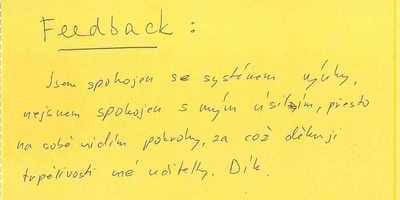 Feedback :
Jsem spokojen se systémem výuky,
nejsem spokojen s mým úsilím, přesto
na sobě vidím pokroky, za což děkuji
trpělivosti mé učitelky. Dík.